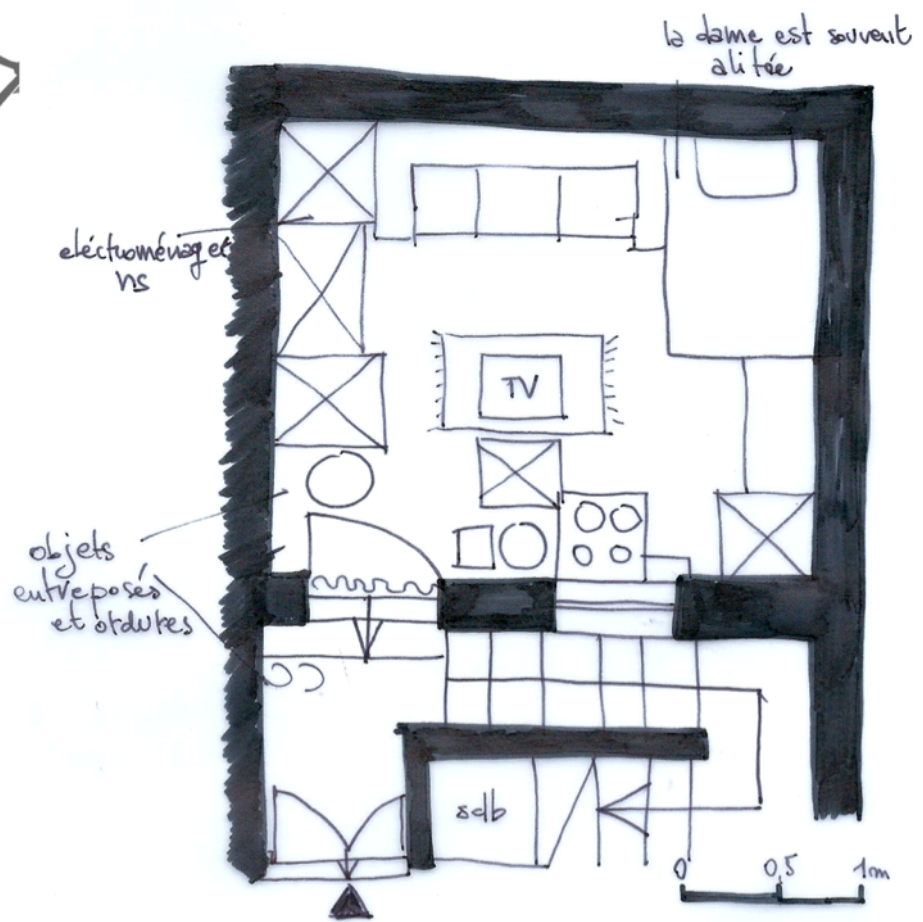 la dame est souvent
alitée
eléctroménager
ns
TV
objets
entreposés
et ordures
sdb
0 0,5 1m